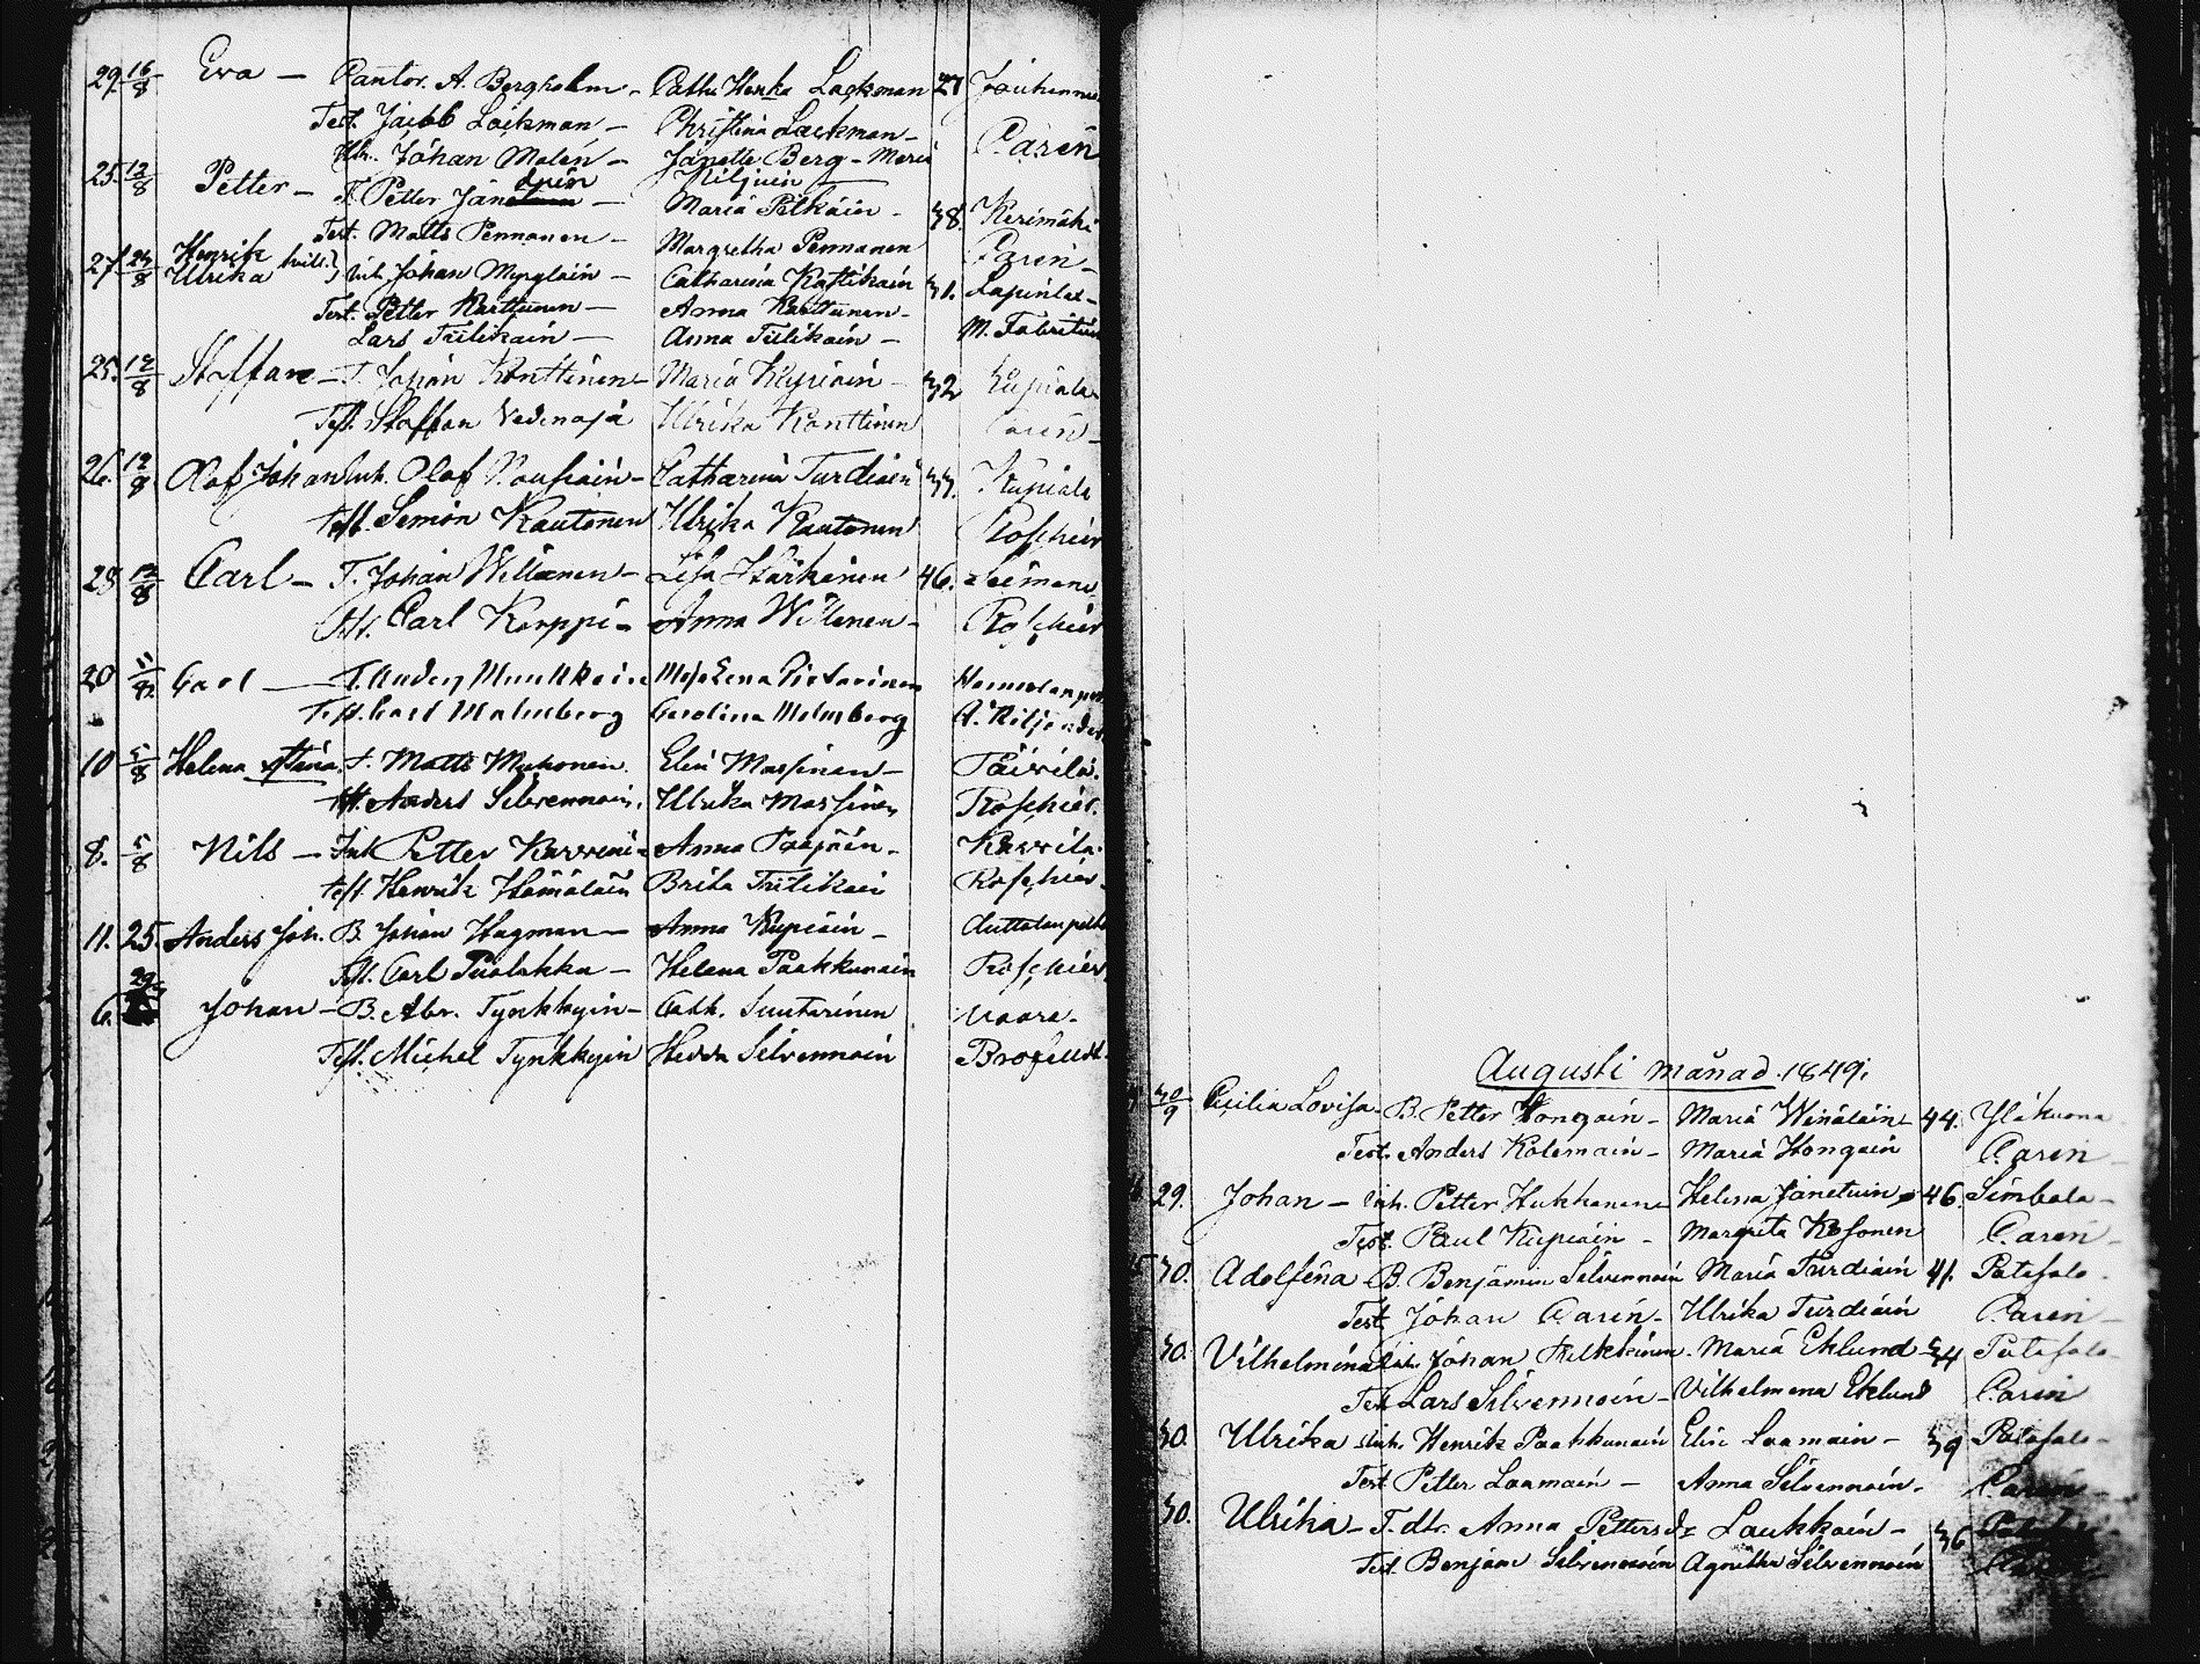 29. 16/8 Eva — Cantor. A. Bergholm — Cath. Henka Lackman 27
Test. Jacob Lackman — Christina Lackman — Carén
Johan Malén — Janette Berg — Maria
Kiljuin
25. 12/8 Petter — T. Petter — Maria Pelkäin — 38. Kerimäki
Test. Matts Pennanen — Margretha Pennanen Carén —
27. 24/8 Henrik
Ulrika Inh. Johan Myryläin — Catharina Kastikain 31. Lapinlax —
Test. Petter Karttunen — Anna Karttunen — M. Fabritius
Lars Tiilikain — Anna Tiilikain —
25. 12/8 Staffan — T. Johan Konttinen — Maria Kypiäin — 32 Kupiala
Test. Staffan Vedenojä Ulrika Konttinen Carén —
26. 12/8 Olof Johan Inh. Olof Nousiain — Catharina Turdiain 33. Kupiala
Test. Semon Kautonen Ulrika Kautonen Roschier
28 12/8 Carl — T. Johan Willanen — Lisa Härkinen 46.
Test. Carl Korppi — Anna Willanen — Roschier
20 Carl — T. Anders Munkkain Maja Lena Pistarinen
Test. Carl Malmberg Carolina Malmberg A. Kiljander
10 5/8 Helena Stina. T. Matts Muhonen. Elin Massinen — Päivilä.
Test. Anders Silvennoin. Ulrika Massinen Roschier.
8. 5/8 Nils — Inh Petter Karvini — Anna Papain — Karvila.
Test. Henrik Hämäläin Brita Tiilikain Roschier
11. 25. Anders Joh. B. Johan Hagman — Anna Kupiäin —
Test. Carl Puolakka — Helena Paakkunain Roschier
6. Johan — B. Abr. Tynkkyin — Cath. Suntarinen Vaara —
Test. Michel Tynkkyin Hedda Silvennoin Brofeldt
Augusti månad 1849.
30/9 Cicilia Lovisa — B. Petter Hongain — Maria Winäläin — 44. Yläkuona
Test. Anders Kolemain — Maria Hongain Carén —
29. Johan — Inh. Petter Hukkanen Helena Janetuin 46. Simbala —
Test. Paul Kupiäin — Margreta Kosonen Carén —
30. Adolfina — B. Benjamin Silvennoin Maria Turdiain 41. Patasalo
Test. Johan Carén — Ulrika Turdiain Carén —
30. Vilhelmina Inh. Johan Maria Eklund 34 Patasalo
Test. Lars Silvennoin — Vilhelmina Eklund Carén
30. Ulrika Inh. Henrik Paakkunain Elin Laamain — 39 Patasalo —
Test. Petter Laamain — Anna Silvennoin — Carén —
30. Ulrika — T. dtr. Anna Pettersdr Laukkain — 36
Test. Benjam Silvennoin Agnetha Silvennoin Carén